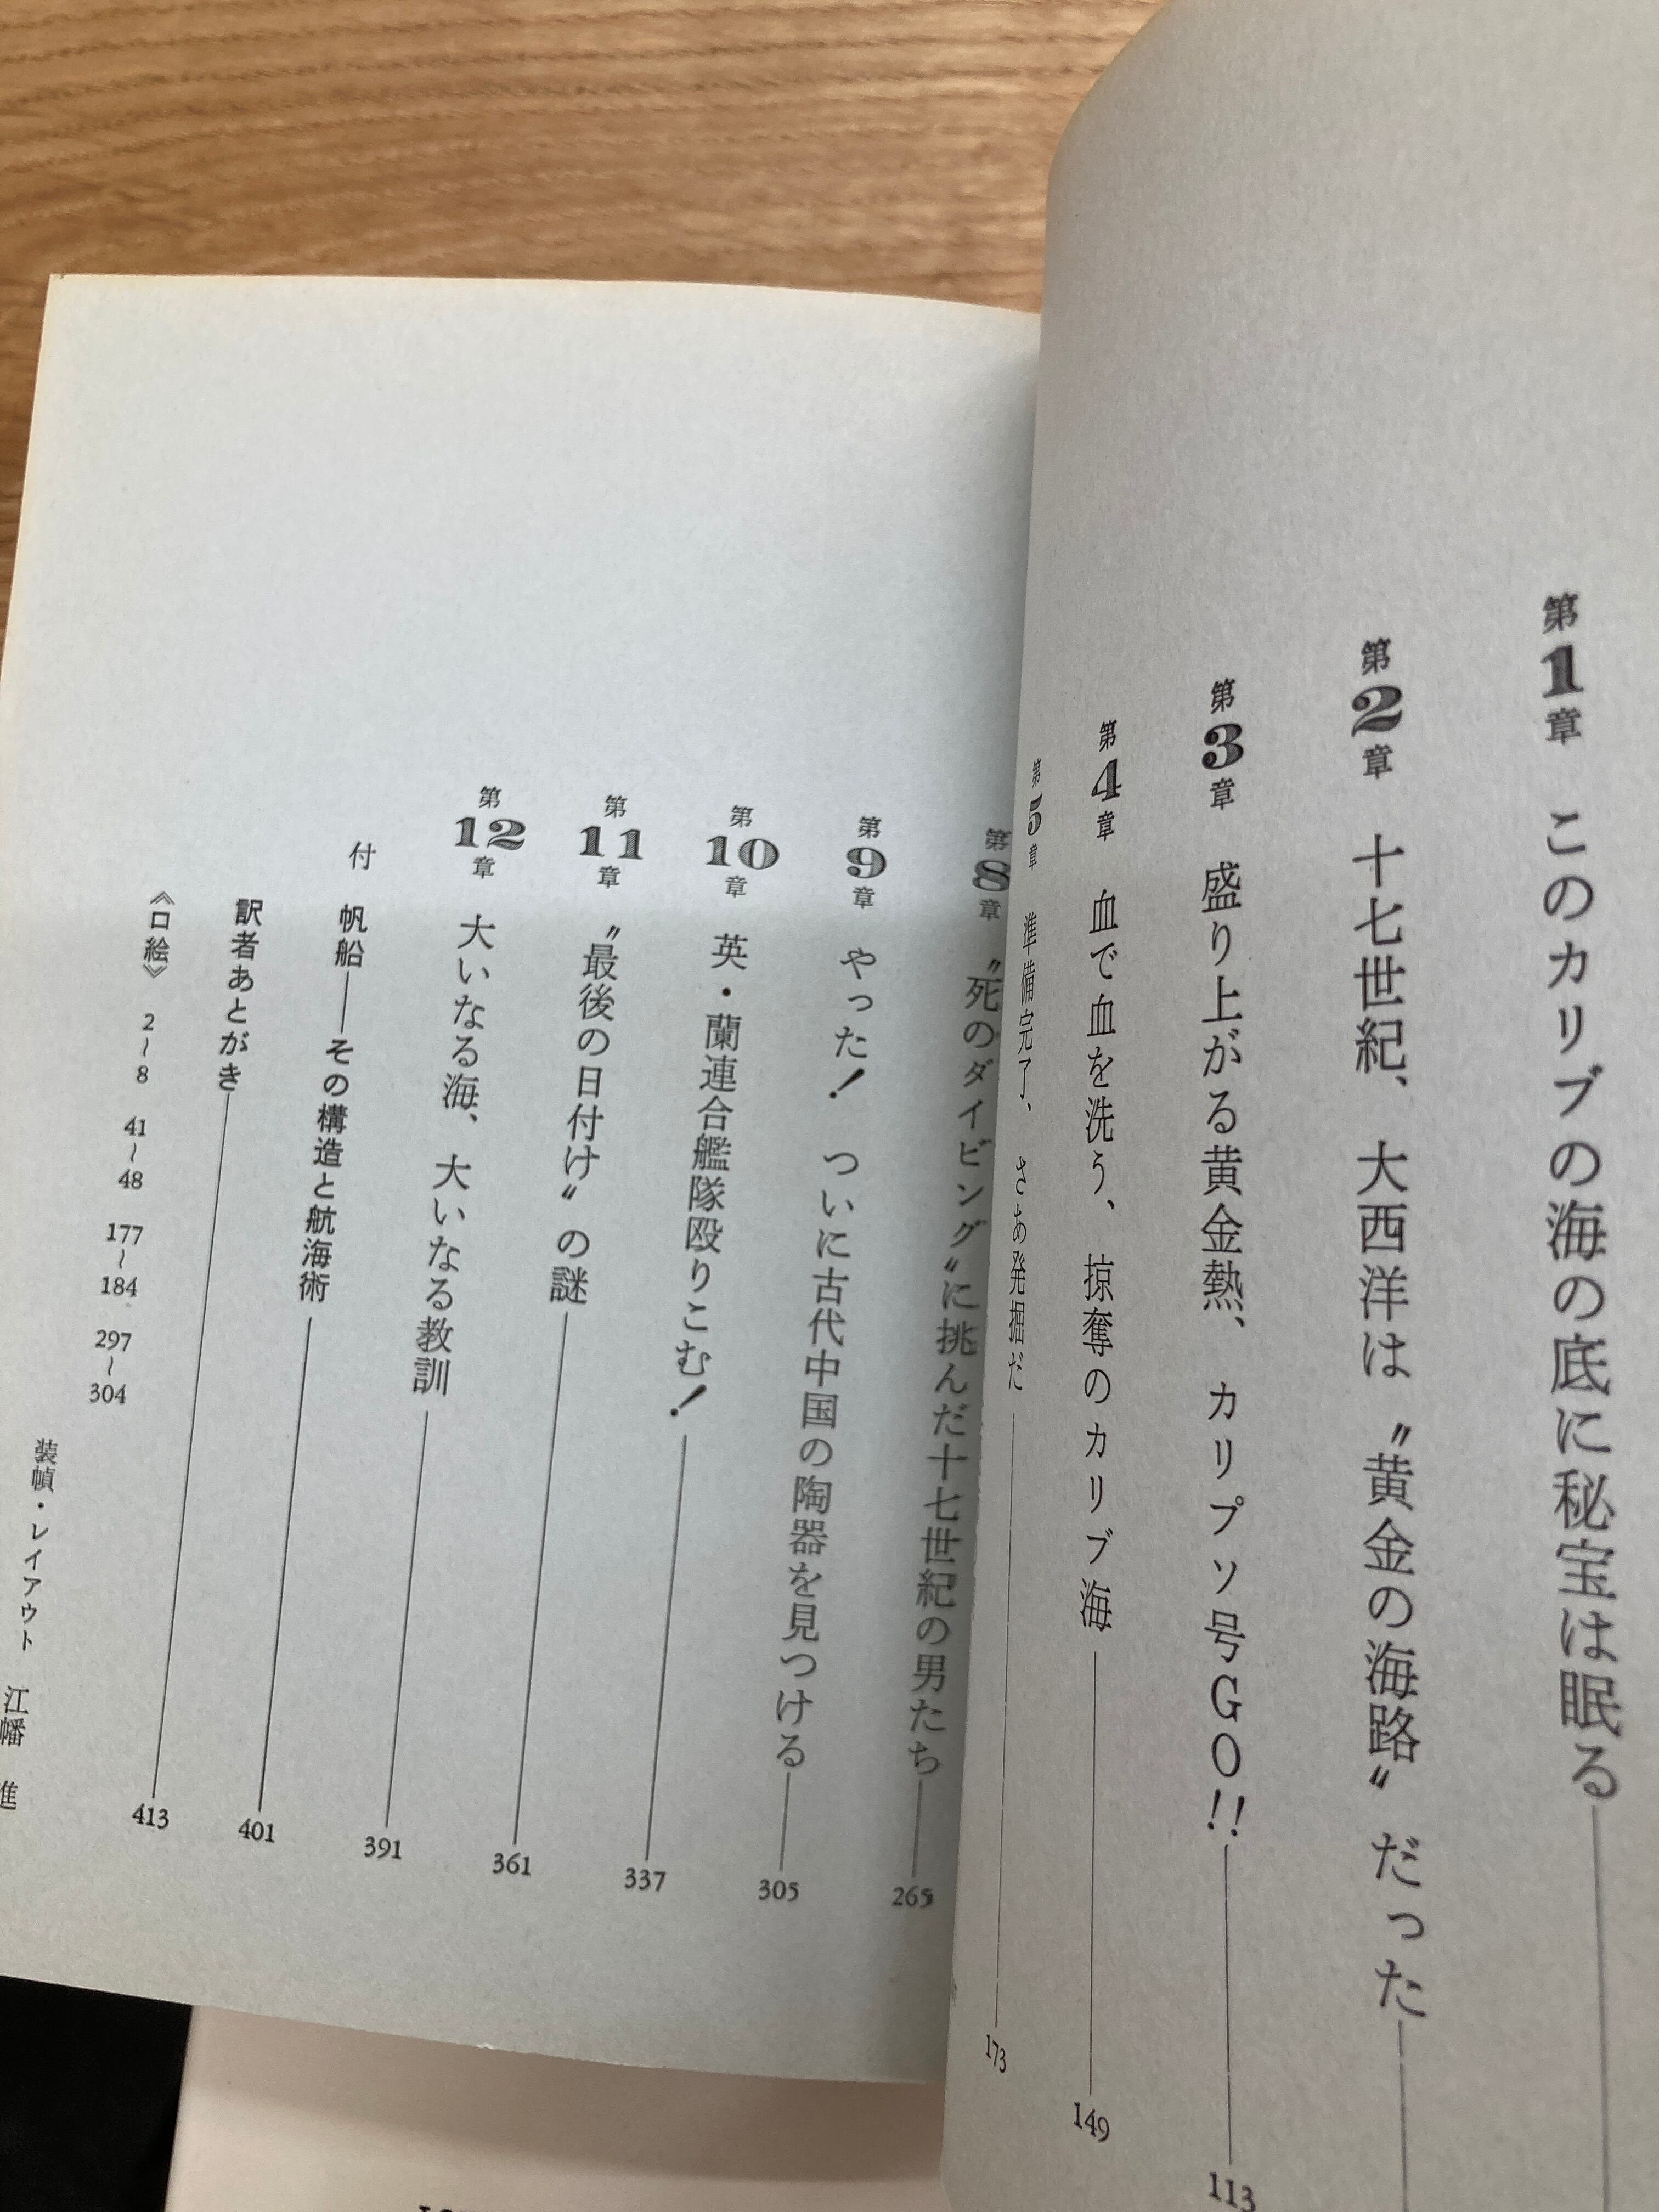 第1章 このカリブの海の底に秘宝は眠る
第2章 十七世紀、大西洋は〝黄金の海路〟だった
第3章 盛り上がる黄金熱、カリプソ号GO!! 113
第4章 血で血を洗う、掠奪のカリブ海 149
第5章 準備完了、さあ発掘だ 173
第8章 〝死のダイビング〟に挑んだ十七世紀の男たち 265
第9章 やった! ついに古代中国の陶器を見つける 305
第10章 英・蘭連合艦隊殴りこむ! 337
第11章 〝最後の日付け〟の謎 361
第12章 大いなる海、大いなる教訓 391
付 帆船――その構造と航海術 401
訳者あとがき 413
《口絵》 2~8 41~48 177~184 297~304
装幀・レイアウト 江幡 進